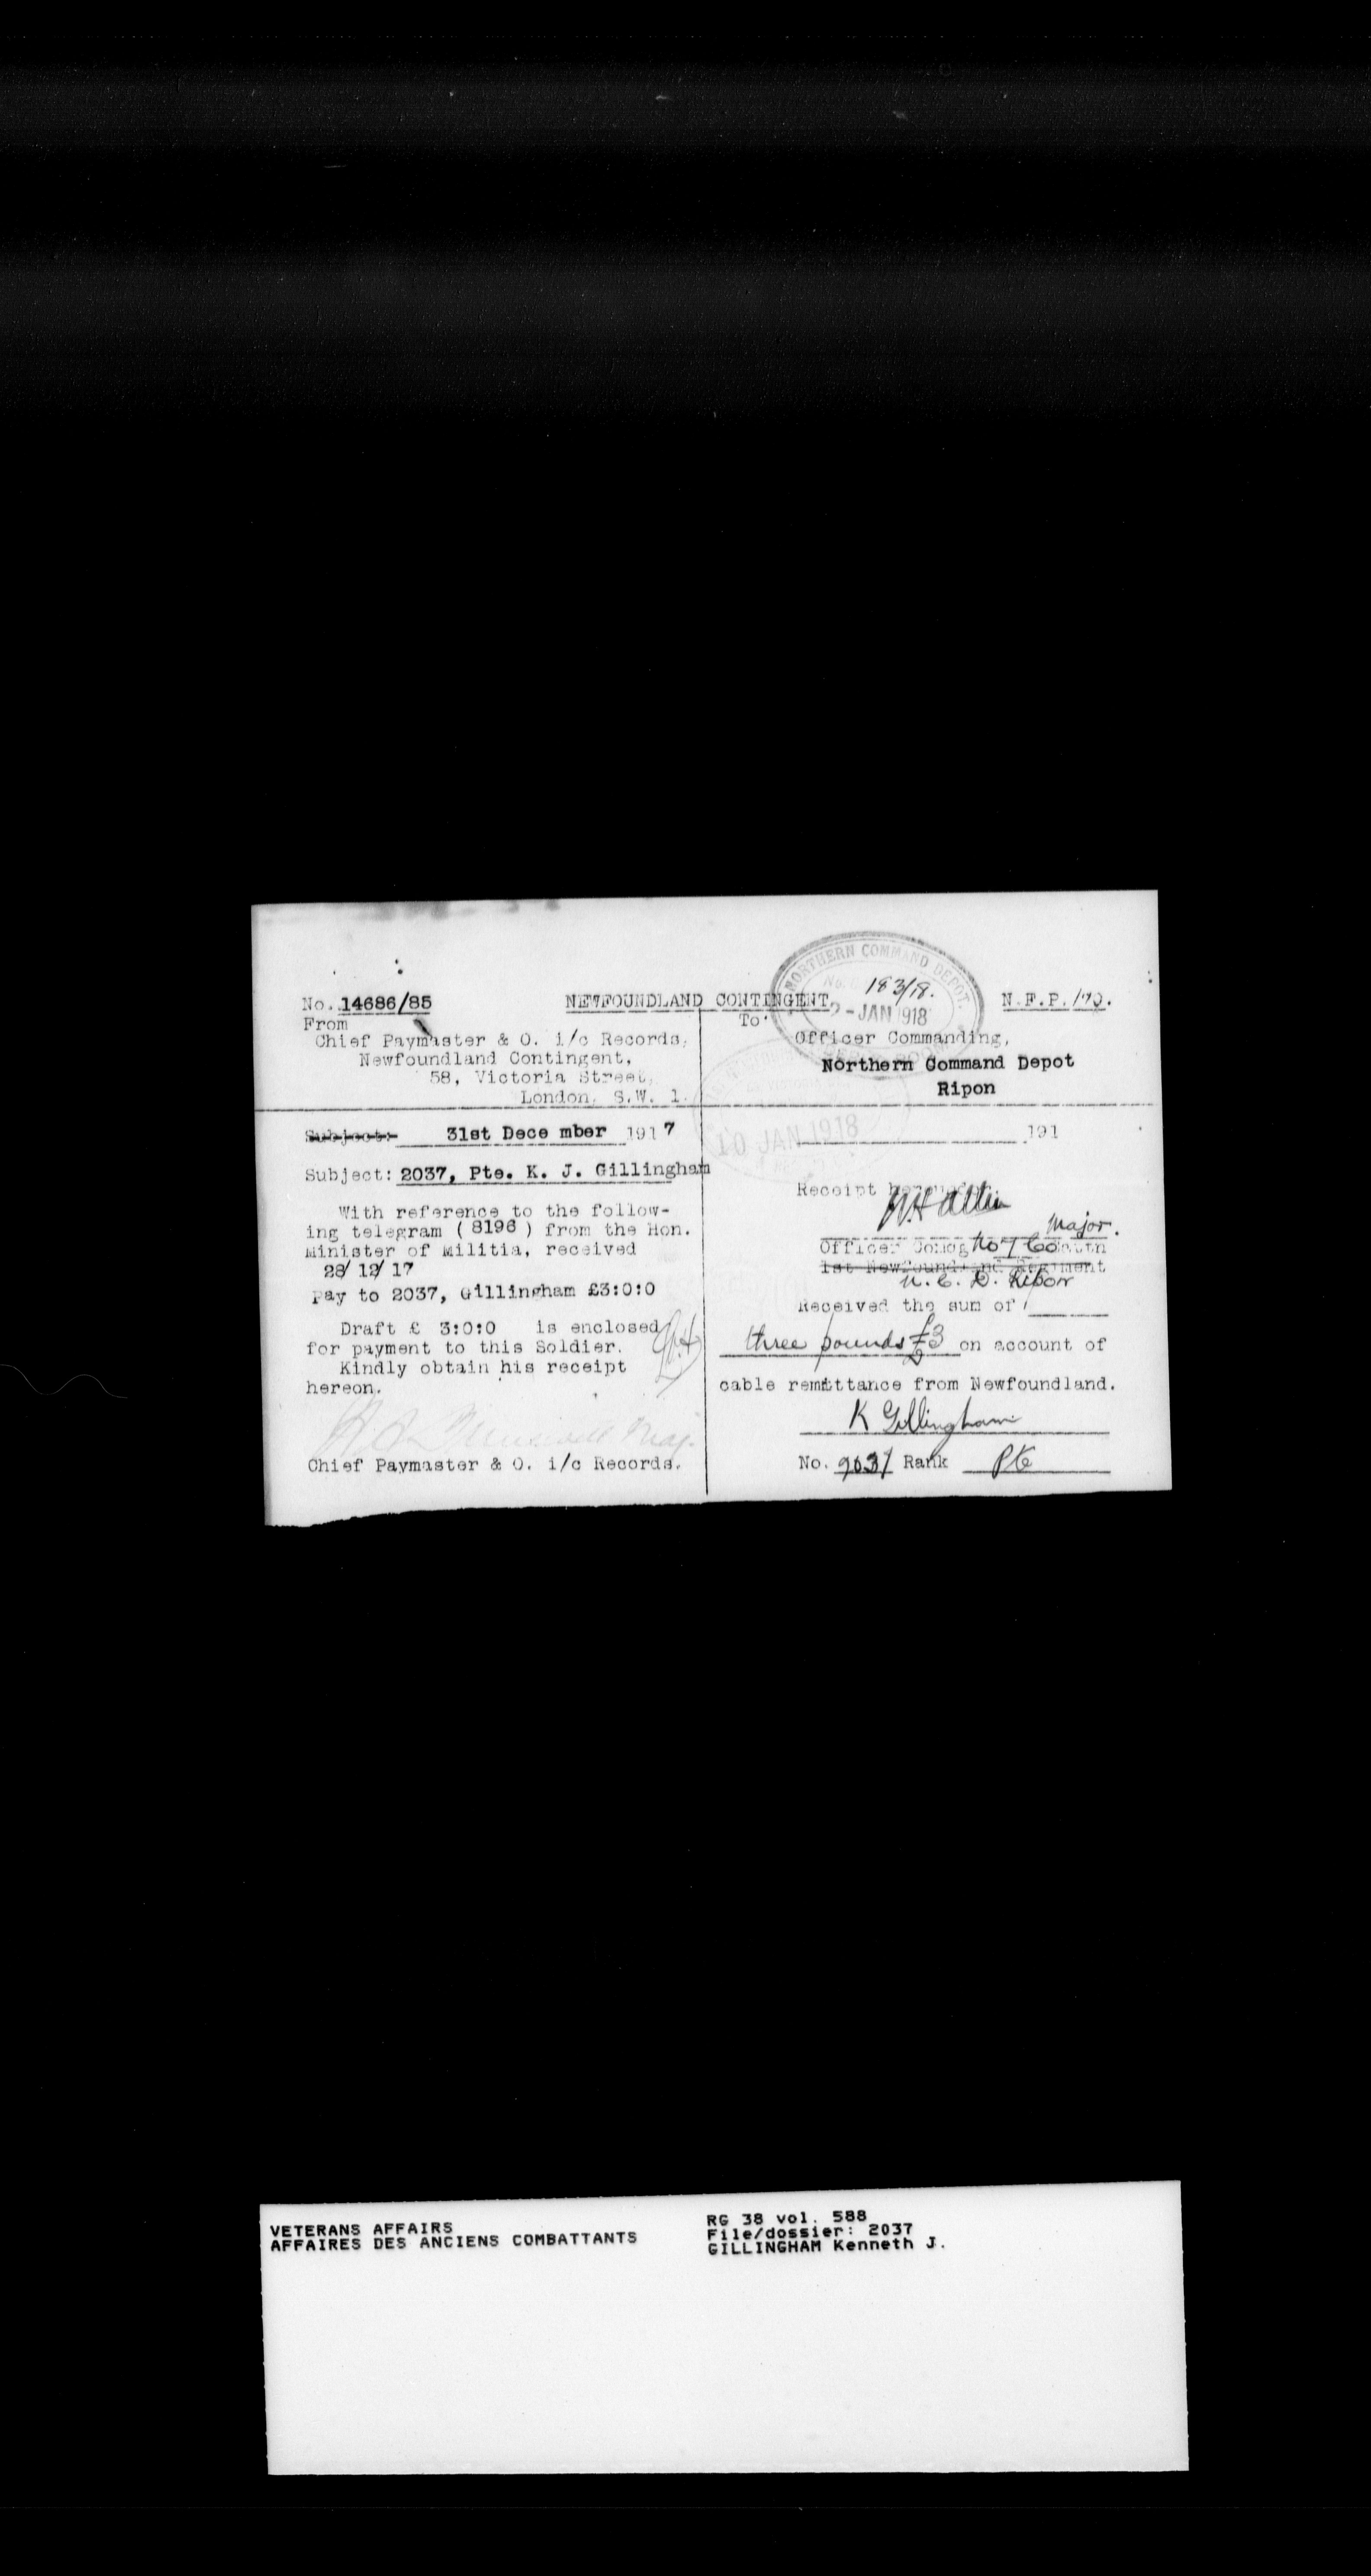 No. 14686/85
NEWFOUNDLAND CONTINGENT
N.F.P./79.
From
Chief Paymaster & O. i/c Records,
Newfoundland Contingent,
58, Victoria Street,
London, S.W. 1.
To
NORTHERN COMMAND DEPOT.
No.
183/18.
- JAN 1918
Officer Commanding,
Northern Command Depot
Ripon
Subject: 31st Dece mber 1917
Subject: 2037, Pte. K. J. Gillingham
With reference to the follow-
ing telegram (8196) from the Hon.
Minister of Militia, received
28/ 12/ 17
Pay to 2037, Gillingham £3:0:0
Draft £ 3:0:0 is enclosed
for payment to this Soldier.
Kindly obtain his receipt
hereon.
Maj.
Chief Paymaster & O. i/c Records.
10 JAN 1918
191
Receipt
Major.
Officer Comdg No 7 Co Battn
1st Newfoundland Regiment
N. C. D. Ripon
Received the sum of
three pounds £3 on account of
cable remittance from Newfoundland.
K Gillingham
No. 2037 Rank Pte
VETERANS AFFAIRS
AFFAIRES DES ANCIENS COMBATTANTS
RG 38 vol. 588
File/dossier: 2037
GILLINGHAM Kenneth J.